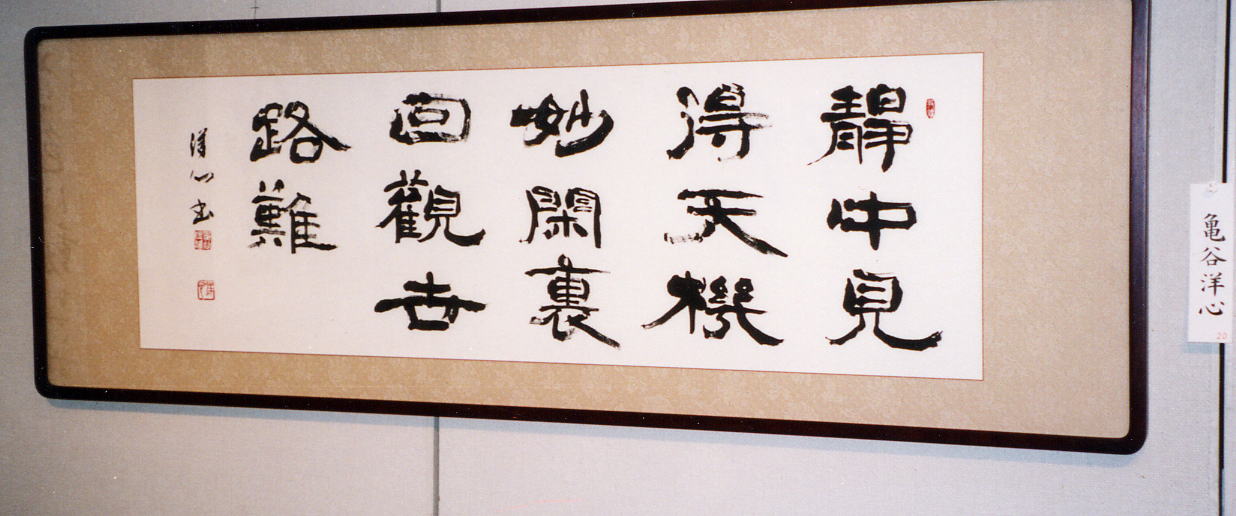 靜中見
得天機
妙閑裏
回觀世
路難
洋心書
亀谷洋心
20